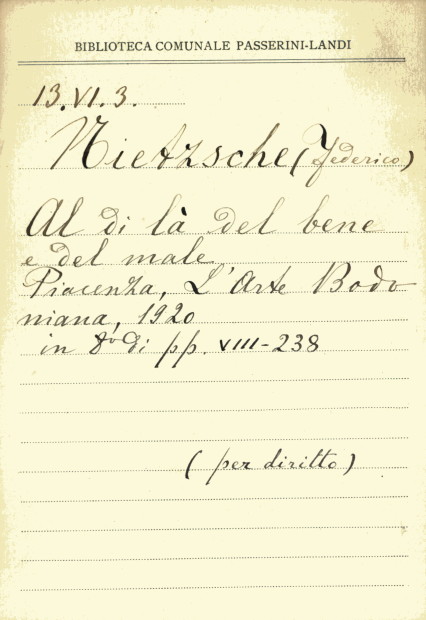 BIBLIOTECA COMUNALE PASSERINI-LANDI
13.VI.3.
Nietzsche (Federico)
Al di là del bene
e del male
Piacenza, L'Arte Bodo
niana, 1920
in 8º di pp. VIII-238
(per diritto)